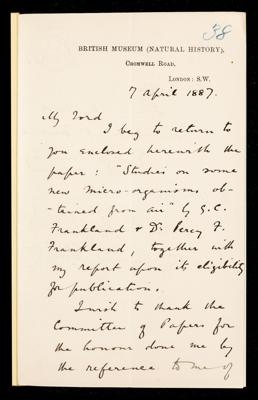 38
BRITISH MUSEUM (NATURAL HISTORY),
CROMWELL ROAD,
LONDON: S.W.
7 April 1887.
My Lord
I beg to return to
you enclosed herewith the
paper: "Studies on some
new micro-organisms ob-
-tained from air" by G. C.
Frankland & Dr. Percy F.
Frankland, together with
my report upon its eligibility
for publication.
I wish to thank the
Committee of Papers for
the honour done me by
the reference to me of